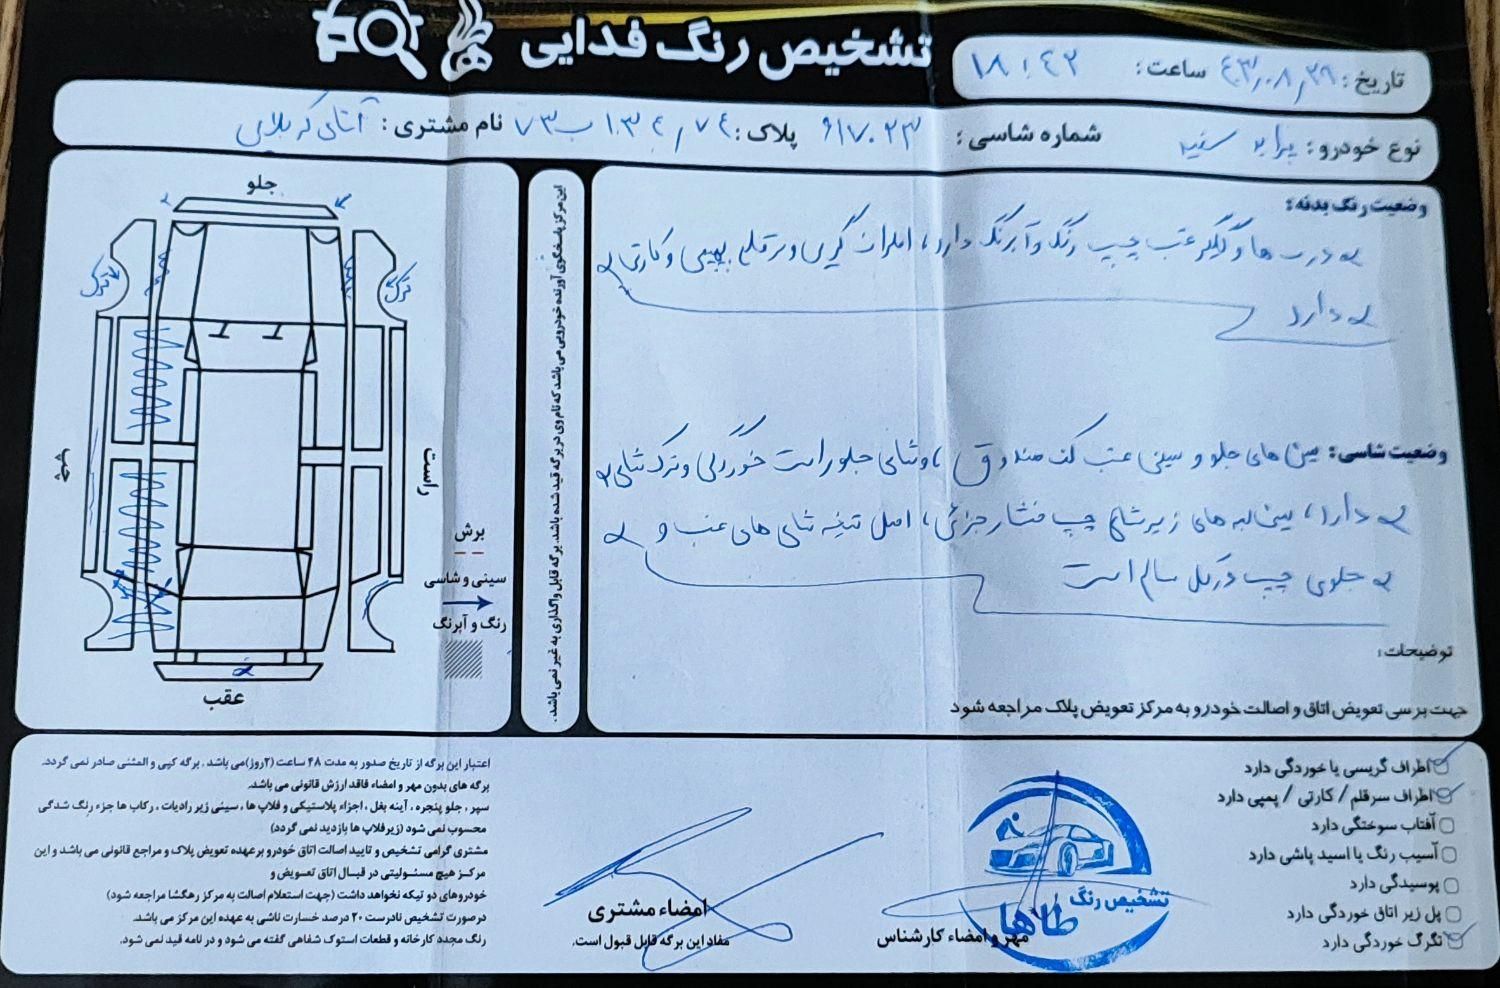 تشخیص رنگ فدایی
تاریخ: ۴۰۳/۰۸/۲۹ ساعت: ۱۸:۴۲
نوع خودرو: پراید سفید شماره شاسی: ۶۱۷۰۲۳ پلاک: ۷۴ / ۱۰۳۴ ب ۷۳ نام مشتری: آقای کربلایی
وضعیت رنگ بدنه:
درب ها و گلگیر عقب چپ رنگ و آبرنگ دارد، اطراف گریسی و سرقلم پمپی و کارتی
دارد
وضعیت شاسی: سینی های جلو و سینی عقب کف صندوق، و شاسی جلو راست خوردگی و ترک شاسی
دارد، سینی لبه های زیر شاسی چپ فشار جزئی، اصل تنه شاسی های عقب و
جلوی چپ در کل سالم است
توضیحات:
جهت برسی تعویض اتاق و اصالت خودرو به مرکز تعویض پلاک مراجعه شود
این مرکز پاسخگوی آورنده خودرویی می باشد که نام وی در برگه قید شده باشد. برگه قابل واگذاری به غیر نمی باشد.
جلو
ترک
ترک
چپ
راست
برش
سینی و شاسی
رنگ و آبرنگ
عقب
اطراف گریسی یا خوردگی دارد
اطراف سرقلم / کارتی / پمپی دارد
آفتاب سوختگی دارد
آسیب رنگ یا اسید پاشی دارد
پوسیدگی دارد
پل زیر اتاق خوردگی دارد
تگرگ خوردگی دارد
تشخیص رنگ
طاها
مهر و امضاء کارشناس
امضاء مشتری
مفاد این برگه قابل قبول است.
اعتبار این برگه از تاریخ صدور به مدت ۴۸ ساعت (۲روز) می باشد. برگه کپی و المثنی صادر نمی گردد.
برگه های بدون مهر و امضاء فاقد ارزش قانونی می باشد.
سپر، جلو پنجره، آینه بغل، اجزاء پلاستیکی و فلاپ ها، سینی زیر رادیات، رکاب ها جزء رنگ شدگی
محسوب نمی شود (زیرفلاپ ها بازدید نمی گردد)
مشتری گرامی تشخیص و تایید اصالت اتاق خودرو برعهده تعویض پلاک و مراجع قانونی می باشد و این
مرکز هیچ مسئولیتی در قبال اتاق تعویض و
خودروهای دو تیکه نخواهد داشت (جهت استعلام اصالت به مرکز رهگشا مراجعه شود)
درصورت تشخیص نادرست ۲۰ درصد خسارت ناشی به عهده این مرکز می باشد.
رنگ مجدد کارخانه و قطعات استوک شفاهی گفته می شود و در نامه قید نمی شود.